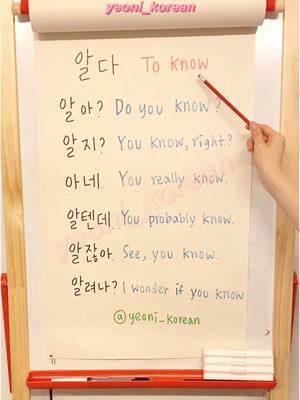 yeoni_korean
알다 To know
알아? Do you know?
알지? You know, right?
아네. You really know.
알텐데. You probably know.
알잖아. See, you know.
알려나? I wonder if you know
@yeoni_korean
yeoni_korean